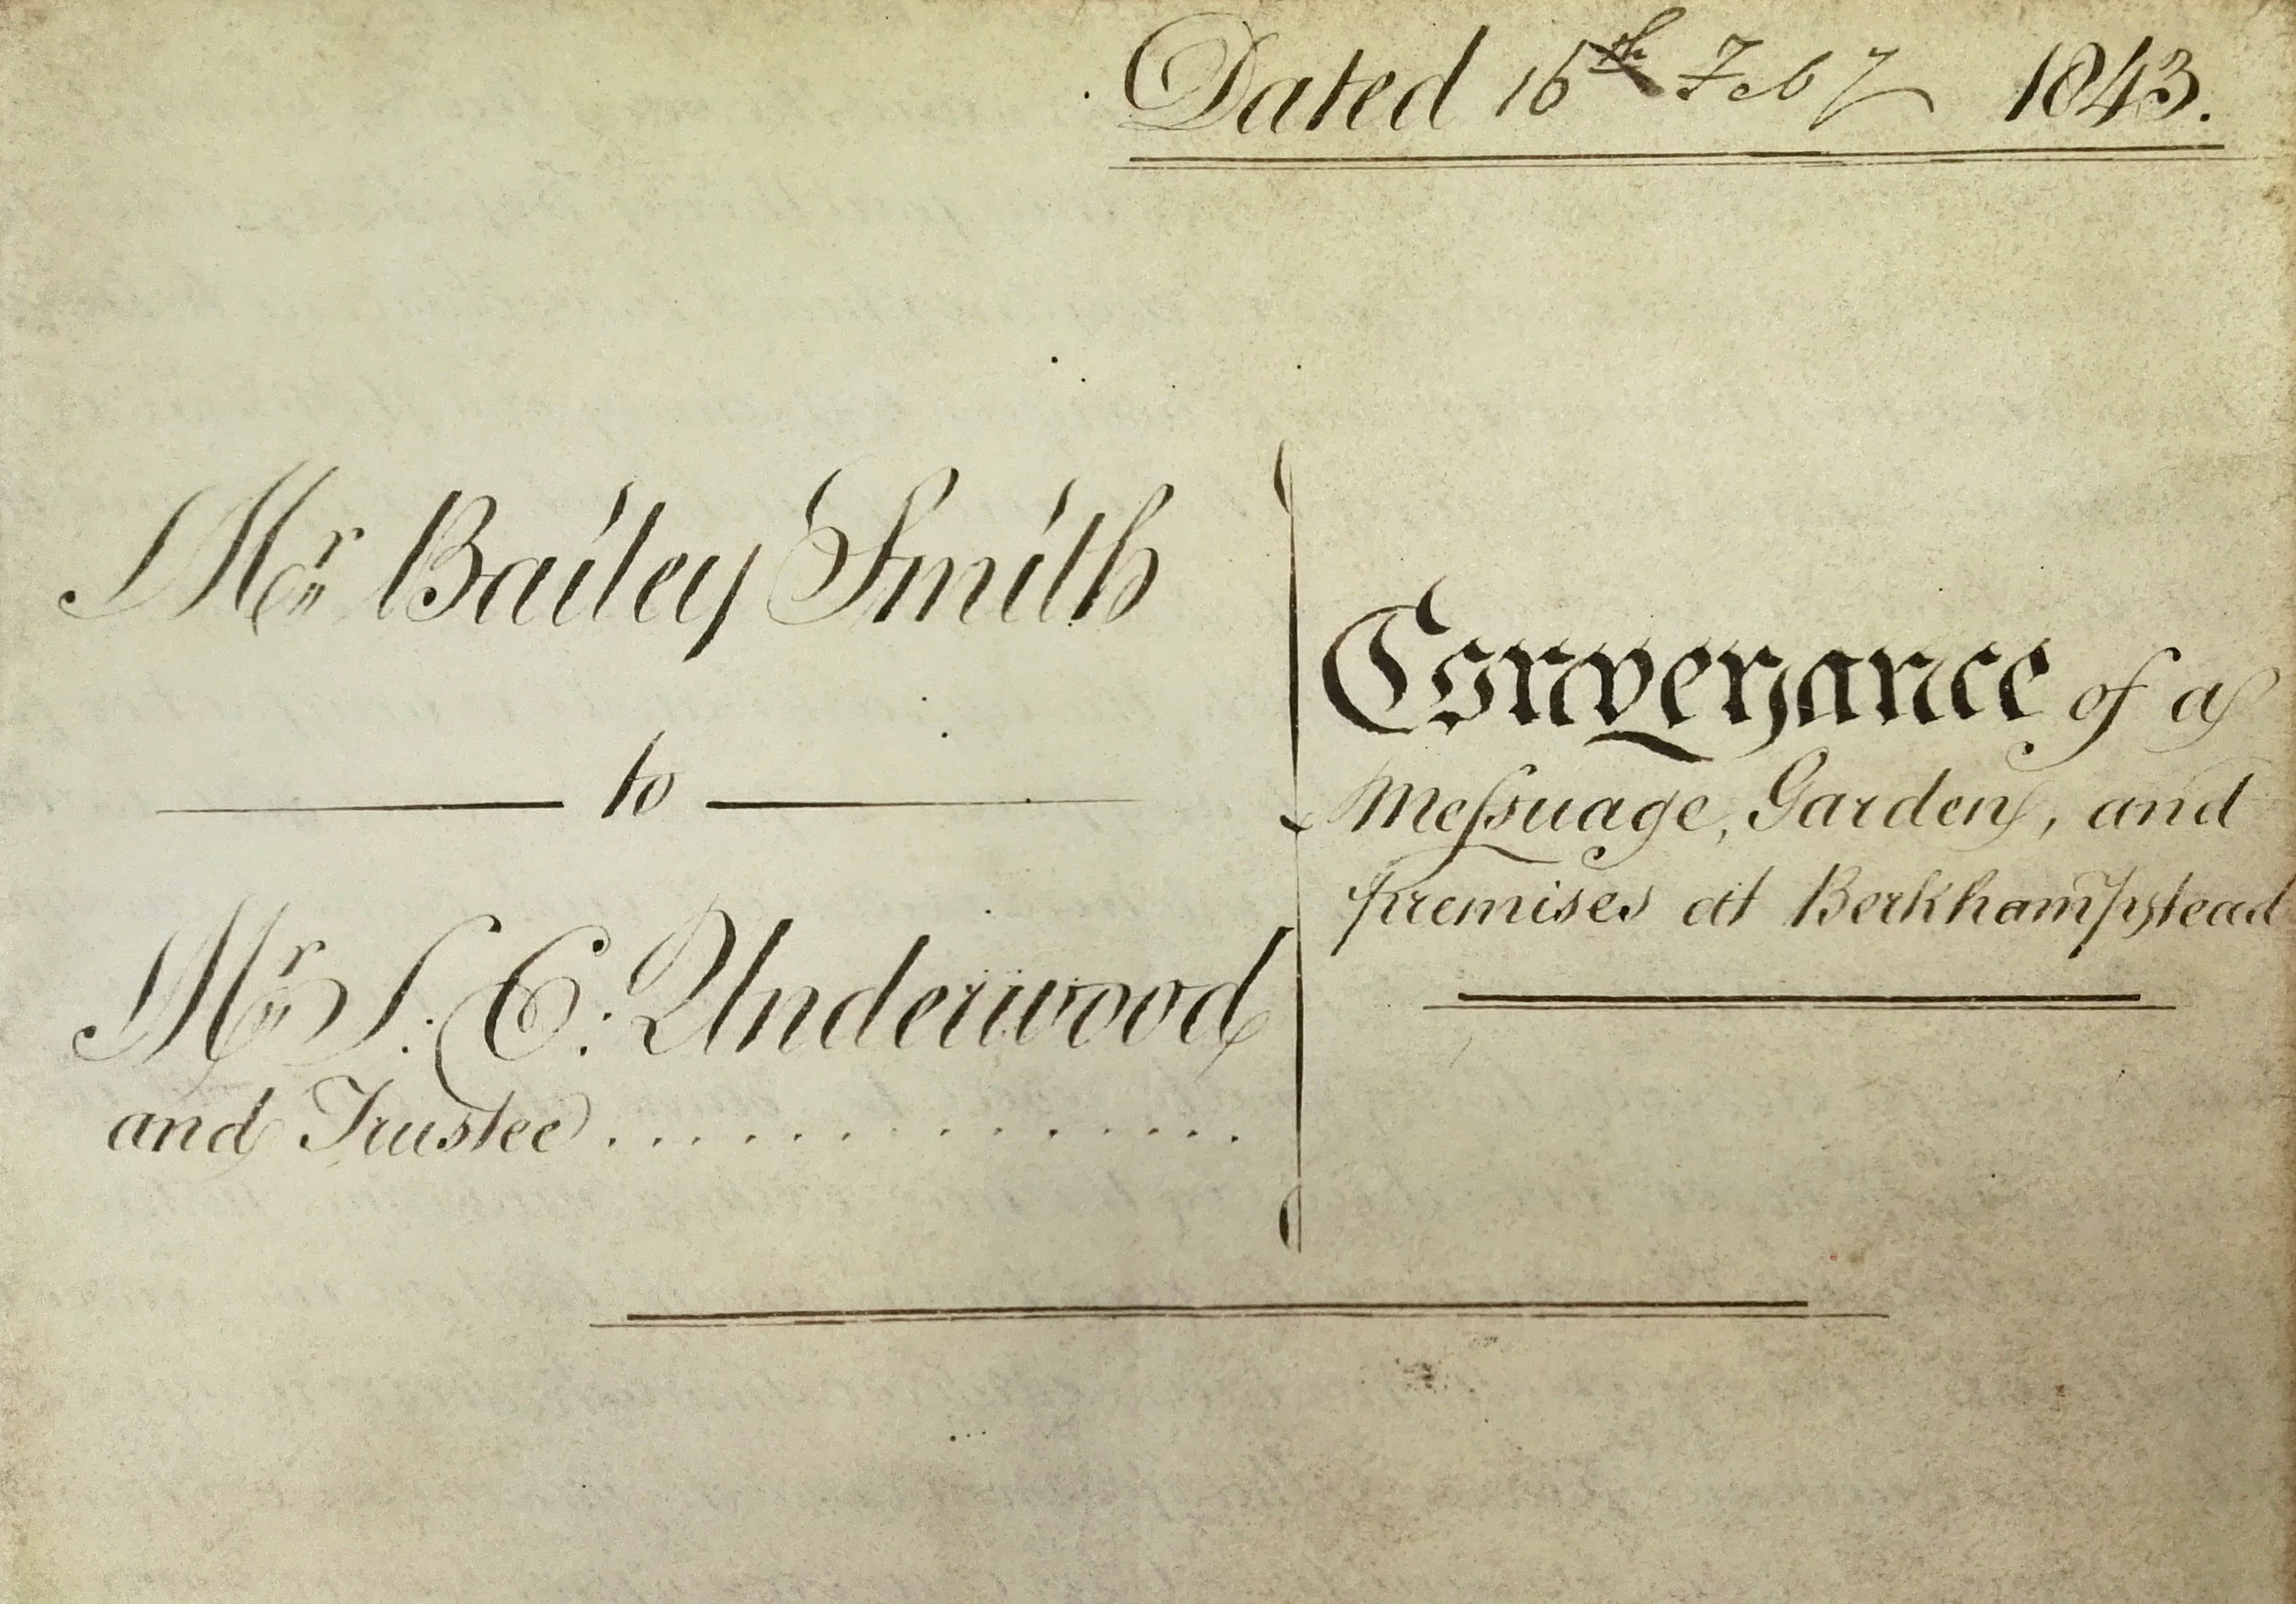 Dated 16th Feby 1843.
Mr Bailey Smith
to
Mr S. E. Underwood
and Trustee ...............
Conveyance of a
Meſsuage, Garden, and
premises at Berkhampstead